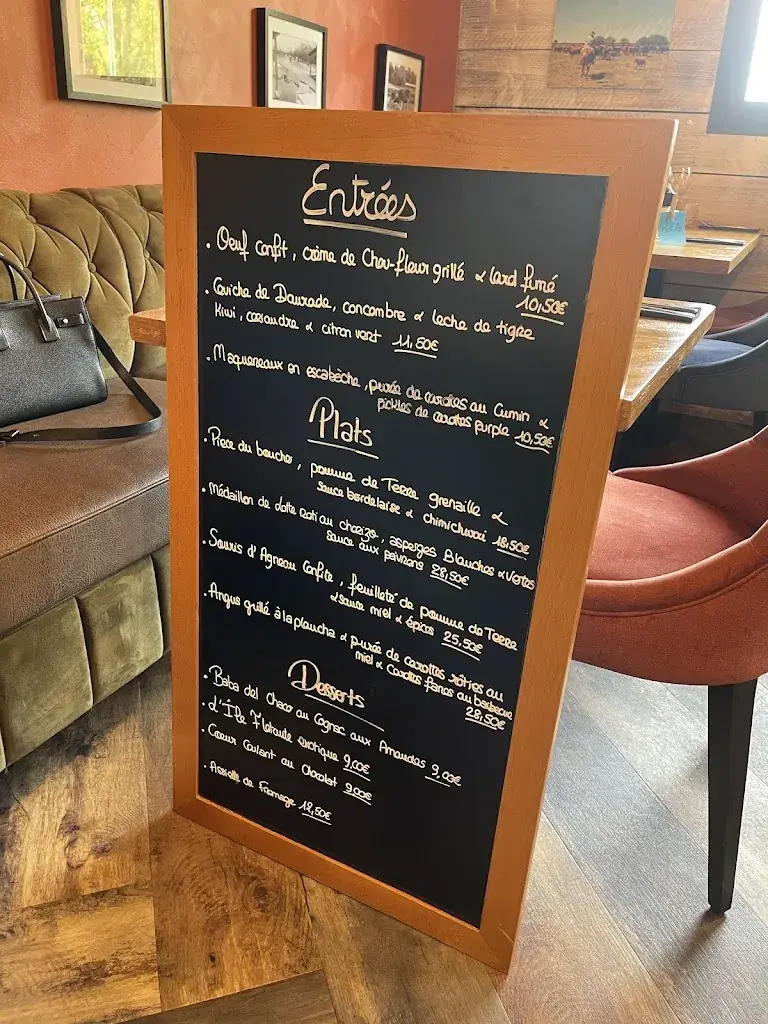 Entrées
. Oeuf confit, crème de Chou-fleur grillé & lard fumé
10,50€
. Ceviche de Daurade, concombre & leche de tigre
Kiwi, coriandre & citron vert 11,50€
. Maquereaux en escabèche, purée de carottes au Cumin &
pickles de carottes purple 10,50€
Plats
. Pièce du boucher, pomme de Terre grenaille &
sauce bordelaise & chimichurri 18,50€
. Médaillon de Lotte roti au chorizo, asperges Blanches & Vertes
sauce aux poivrons 28,50€
. Souris d'Agneau Confite, feuilleté de pomme de Terre
& sauce miel & épices 25,50€
. Angus grillé à la plancha & purée de carottes rôties au
miel & carottes fanes au barbecue
28,50€
Desserts
. Baba del Chaco au Cognac aux Amandes 9,00€
. L'Île Flottante exotique 9,00€
. Coeur Coulant au Chocolat 9,00€
. Assiette de Fromage 12,50€